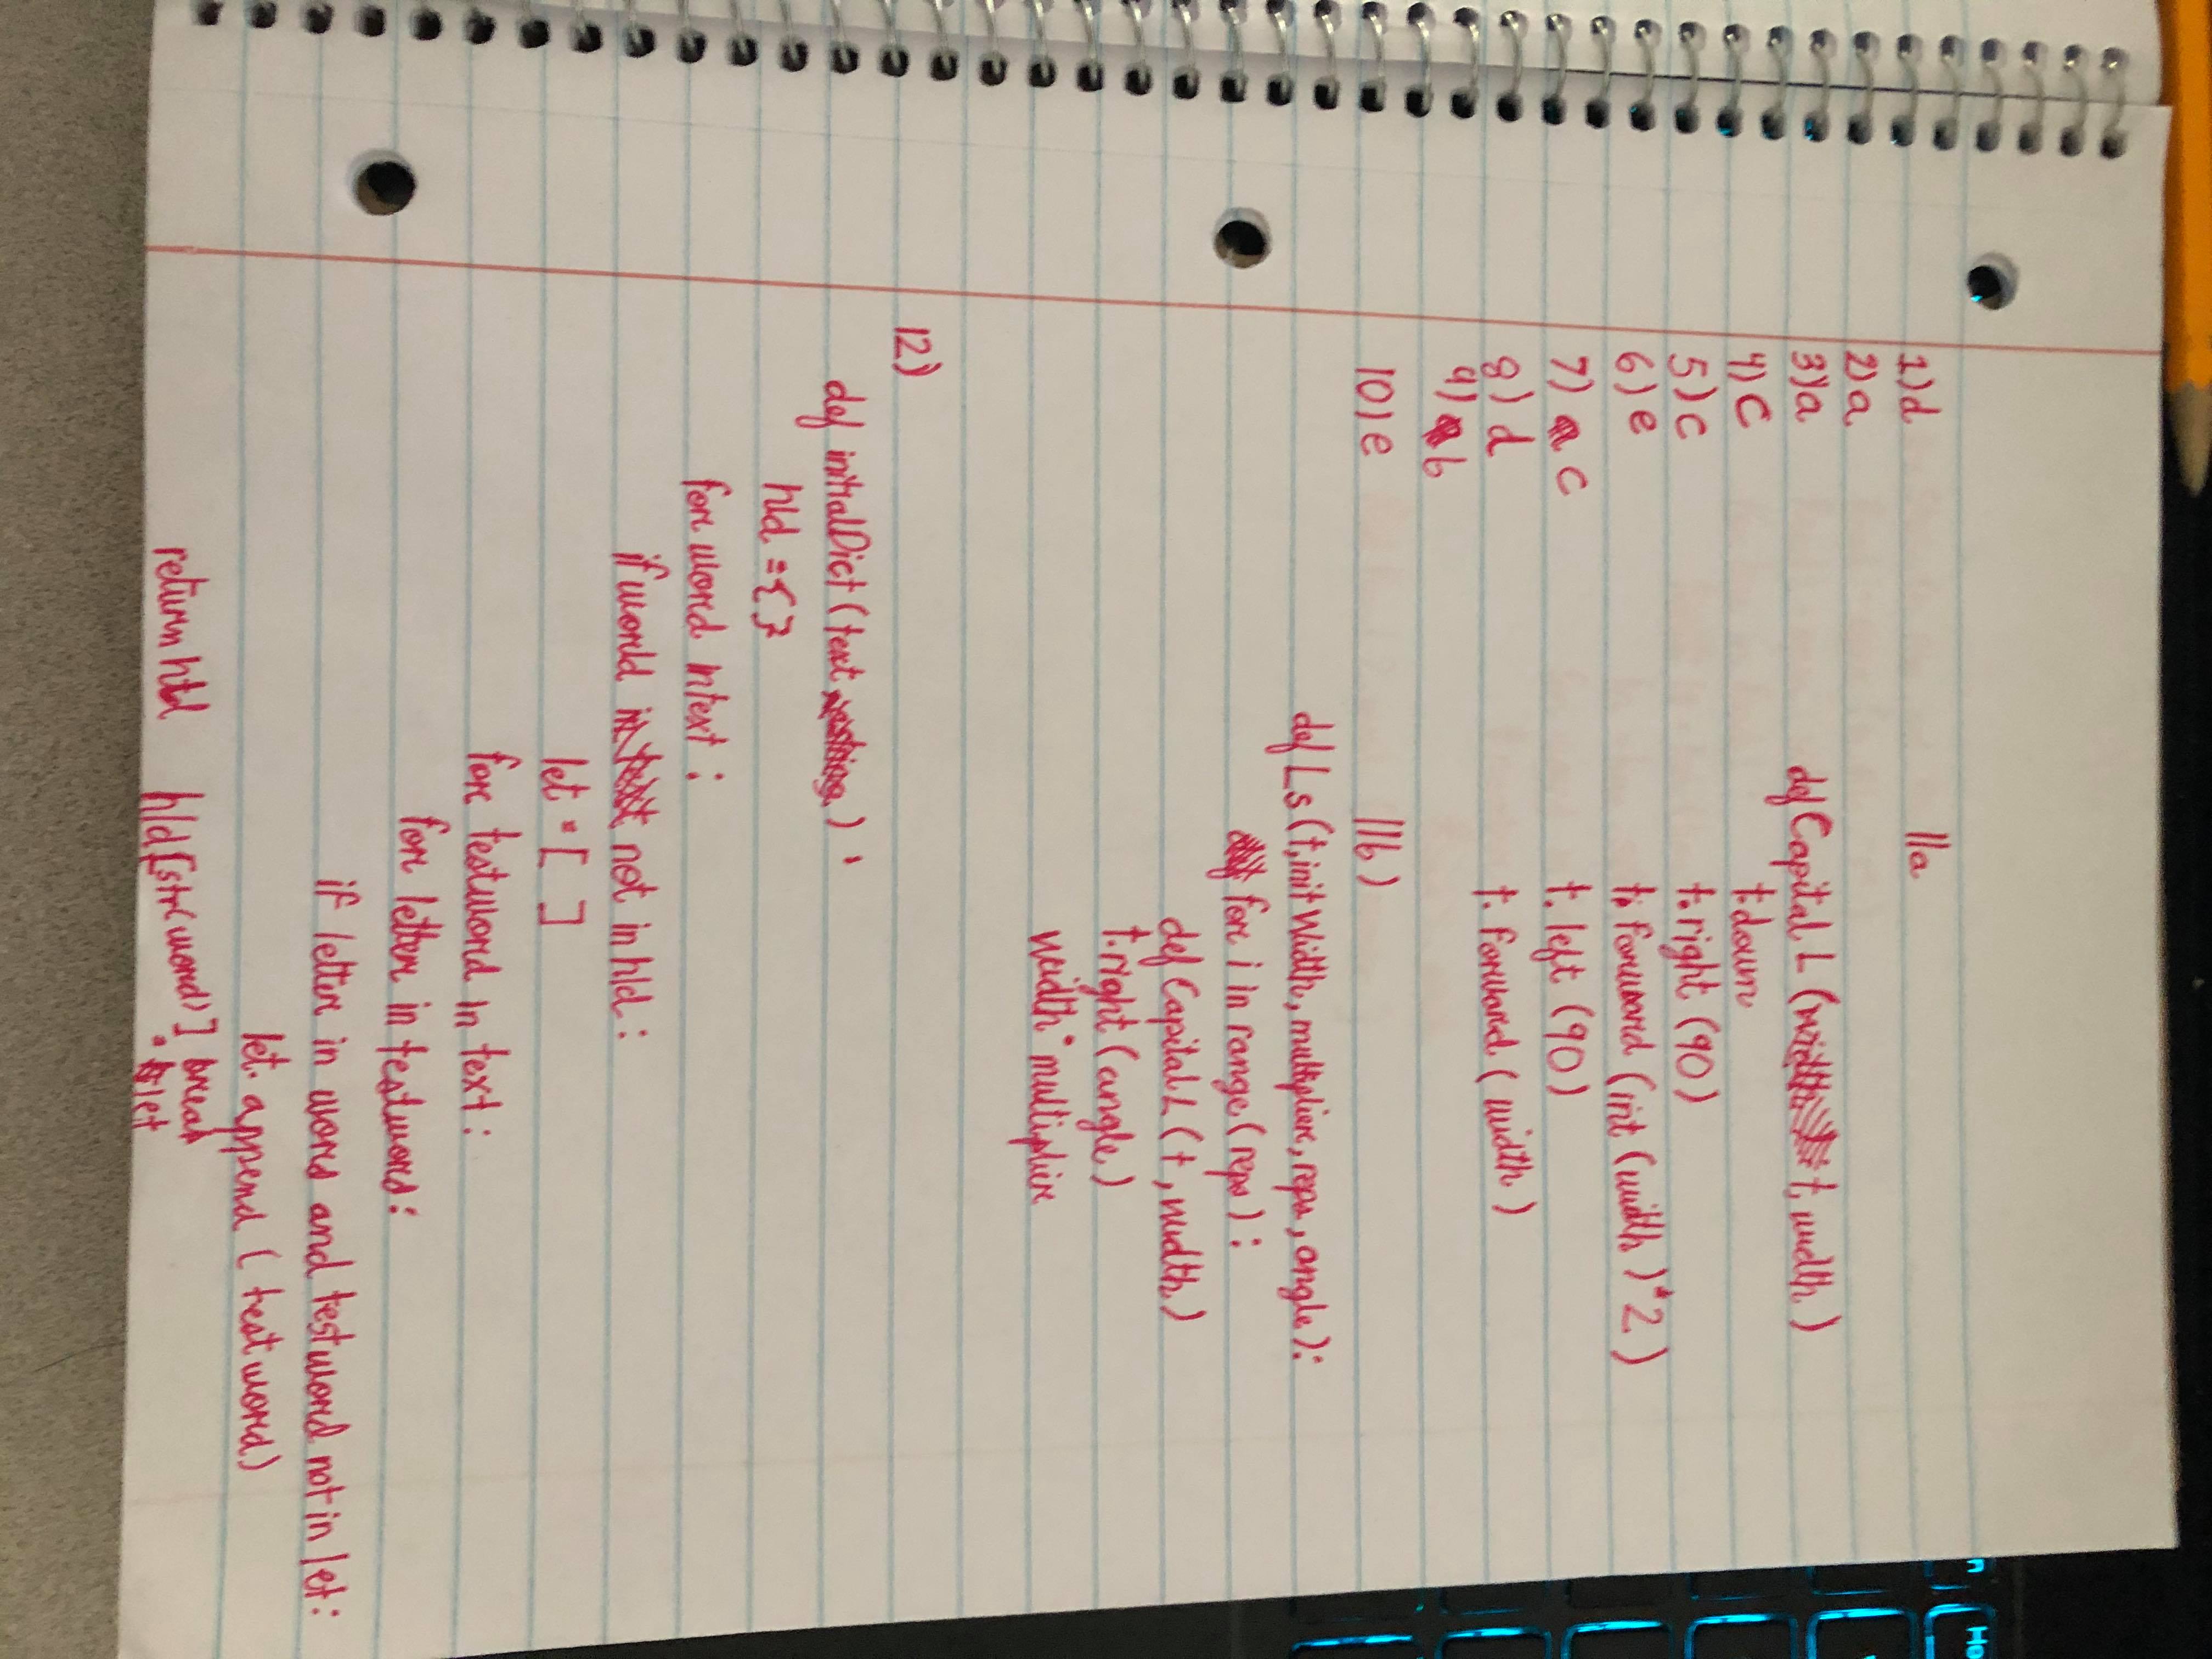 1) d
2) a
3) a
4) c
5) c
6) e
7) c
8) d
9) b
10) e
11a
def Capital L (t, width)
t.down
t.right (90)
t. forward (int (width) * 2)
t. left (90)
t. forward (width)
11b)
def Ls (t, init Width, multiplier, reps, angle):
for i in range (reps):
def Capital L (t, width)
t.right (angle)
width * multiplier
12)
def initialDict (text)
hld = { }
for word in text:
if world not in hld:
let = [ ]
for testword in text:
for letter in testword:
if letter in word and testword not in let:
let. append (testword)
break
hld[str(word)] = let
return hld